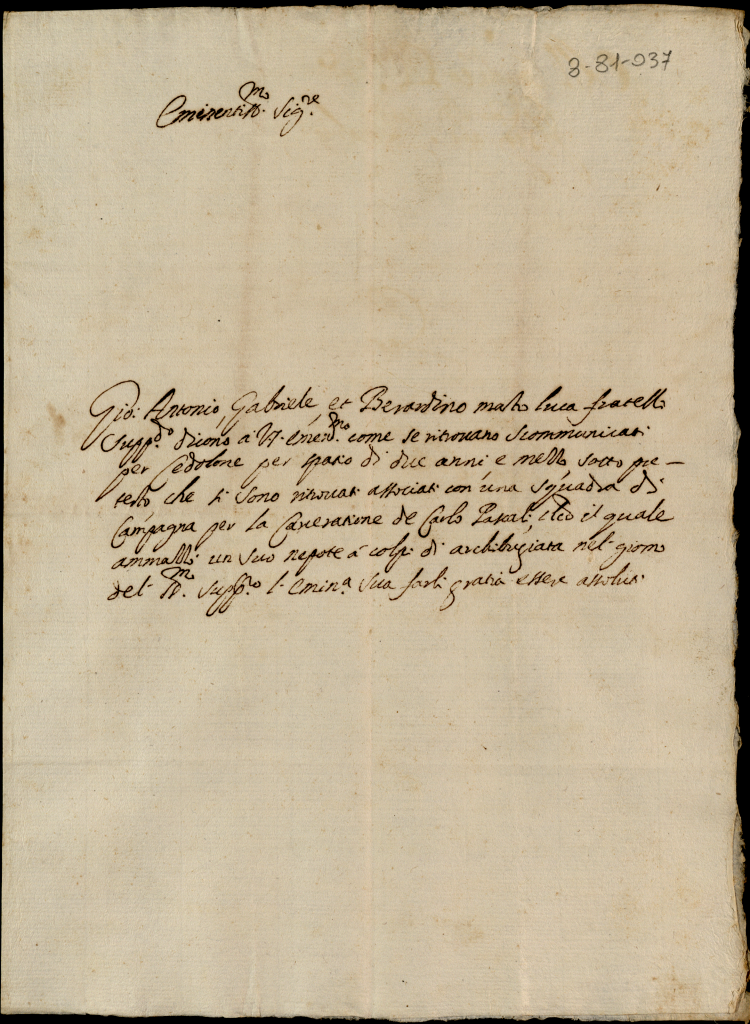 8-81-037
Eminentiss.mo Sig.re
Gio: Antonio, Gabriele, et Berardino masto luca fratelli
supp.do dicono à V. Emen.mo come se ritrovano scommunicati
per Cedolone per spatio di due anni e mezzo sotto pre-
testo che si sono ritrovati associati con una squadra di
Campagna per la Carceratione de Carlo Pascali, il quale
ammazzò un suo nepote à colpi di archibugiata nel giorno
del supp.no l'Emin.a Sua farli gratia essere assoluti